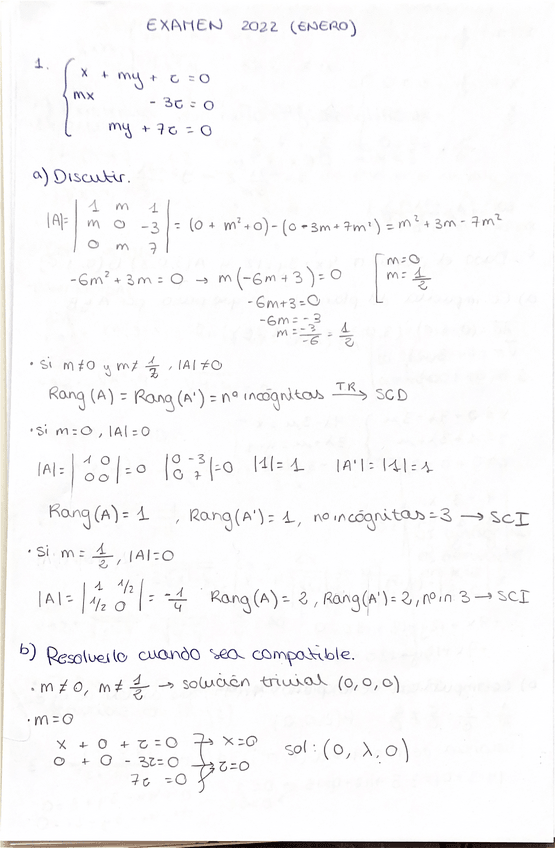 EXAMEN 2022 (ENERO)
1. { x + my + z = 0
mx - 3z = 0
my + 7z = 0
a) Discutir.
|A| = | 1 m 1 | m 0 -3 | 0 m 7 | = (0 + m² + 0) - (0 - 3m + 7m²) = m² + 3m - 7m²
-6m² + 3m = 0 → m(-6m + 3) = 0 [ m = 0
m = 1/2
-6m + 3 = 0
-6m = -3
m = -3/-6 = 1/2
· Si m ≠ 0 y m ≠ 1/2, |A| ≠ 0
Rang(A) = Rang(A') = nº incógnitas TR→ SCD
· Si m = 0, |A| = 0
|A| = | 1 0 | 0 0 | = 0 | 0 -3 | 0 7 | = 0 |1| = 1 |A'| = |1| = 1
Rang(A) = 1 , Rang(A') = 1, no incógnitas = 3 → SCI
· Si m = 1/2, |A| = 0
|A| = | 1 1/2 | 1/2 0 | = -1/4 Rang(A) = 2, Rang(A') = 2, nº in 3 → SCI
b) Resolverlo cuando sea compatible.
· m ≠ 0, m ≠ 1/2 → solución trivial (0, 0, 0)
· m = 0
x + 0 + z = 0 → x = 0
0 + 0 - 3z = 0 → z = 0 sol: (0, λ, 0)
7z = 0